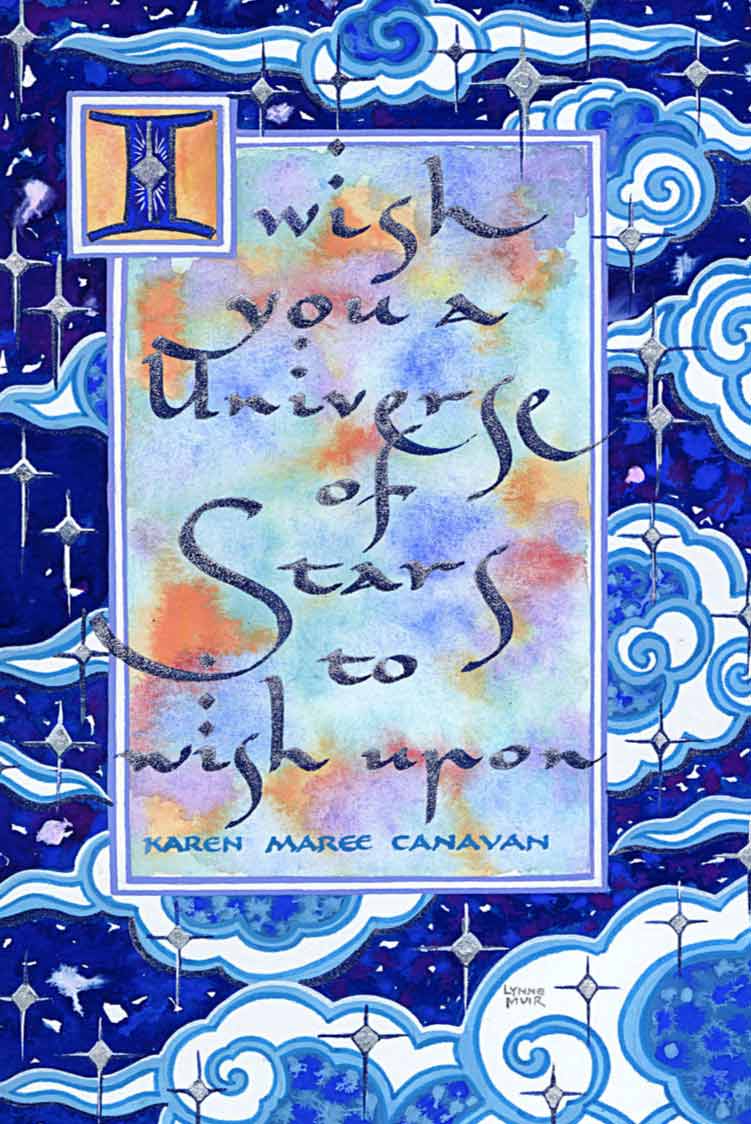 I wish
you a
Universe
of
Stars
to
wish upon
KAREN MAREE CANAVAN
LYNNE
MUIR